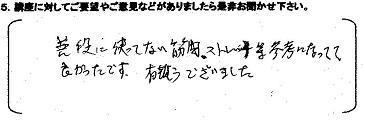 5. 講座に対してご要望やご意見などがありましたら是非お聞かせ下さい。
普段に使ってない筋肉、ストレッチ等参考になってて
良かったです 有難うございました